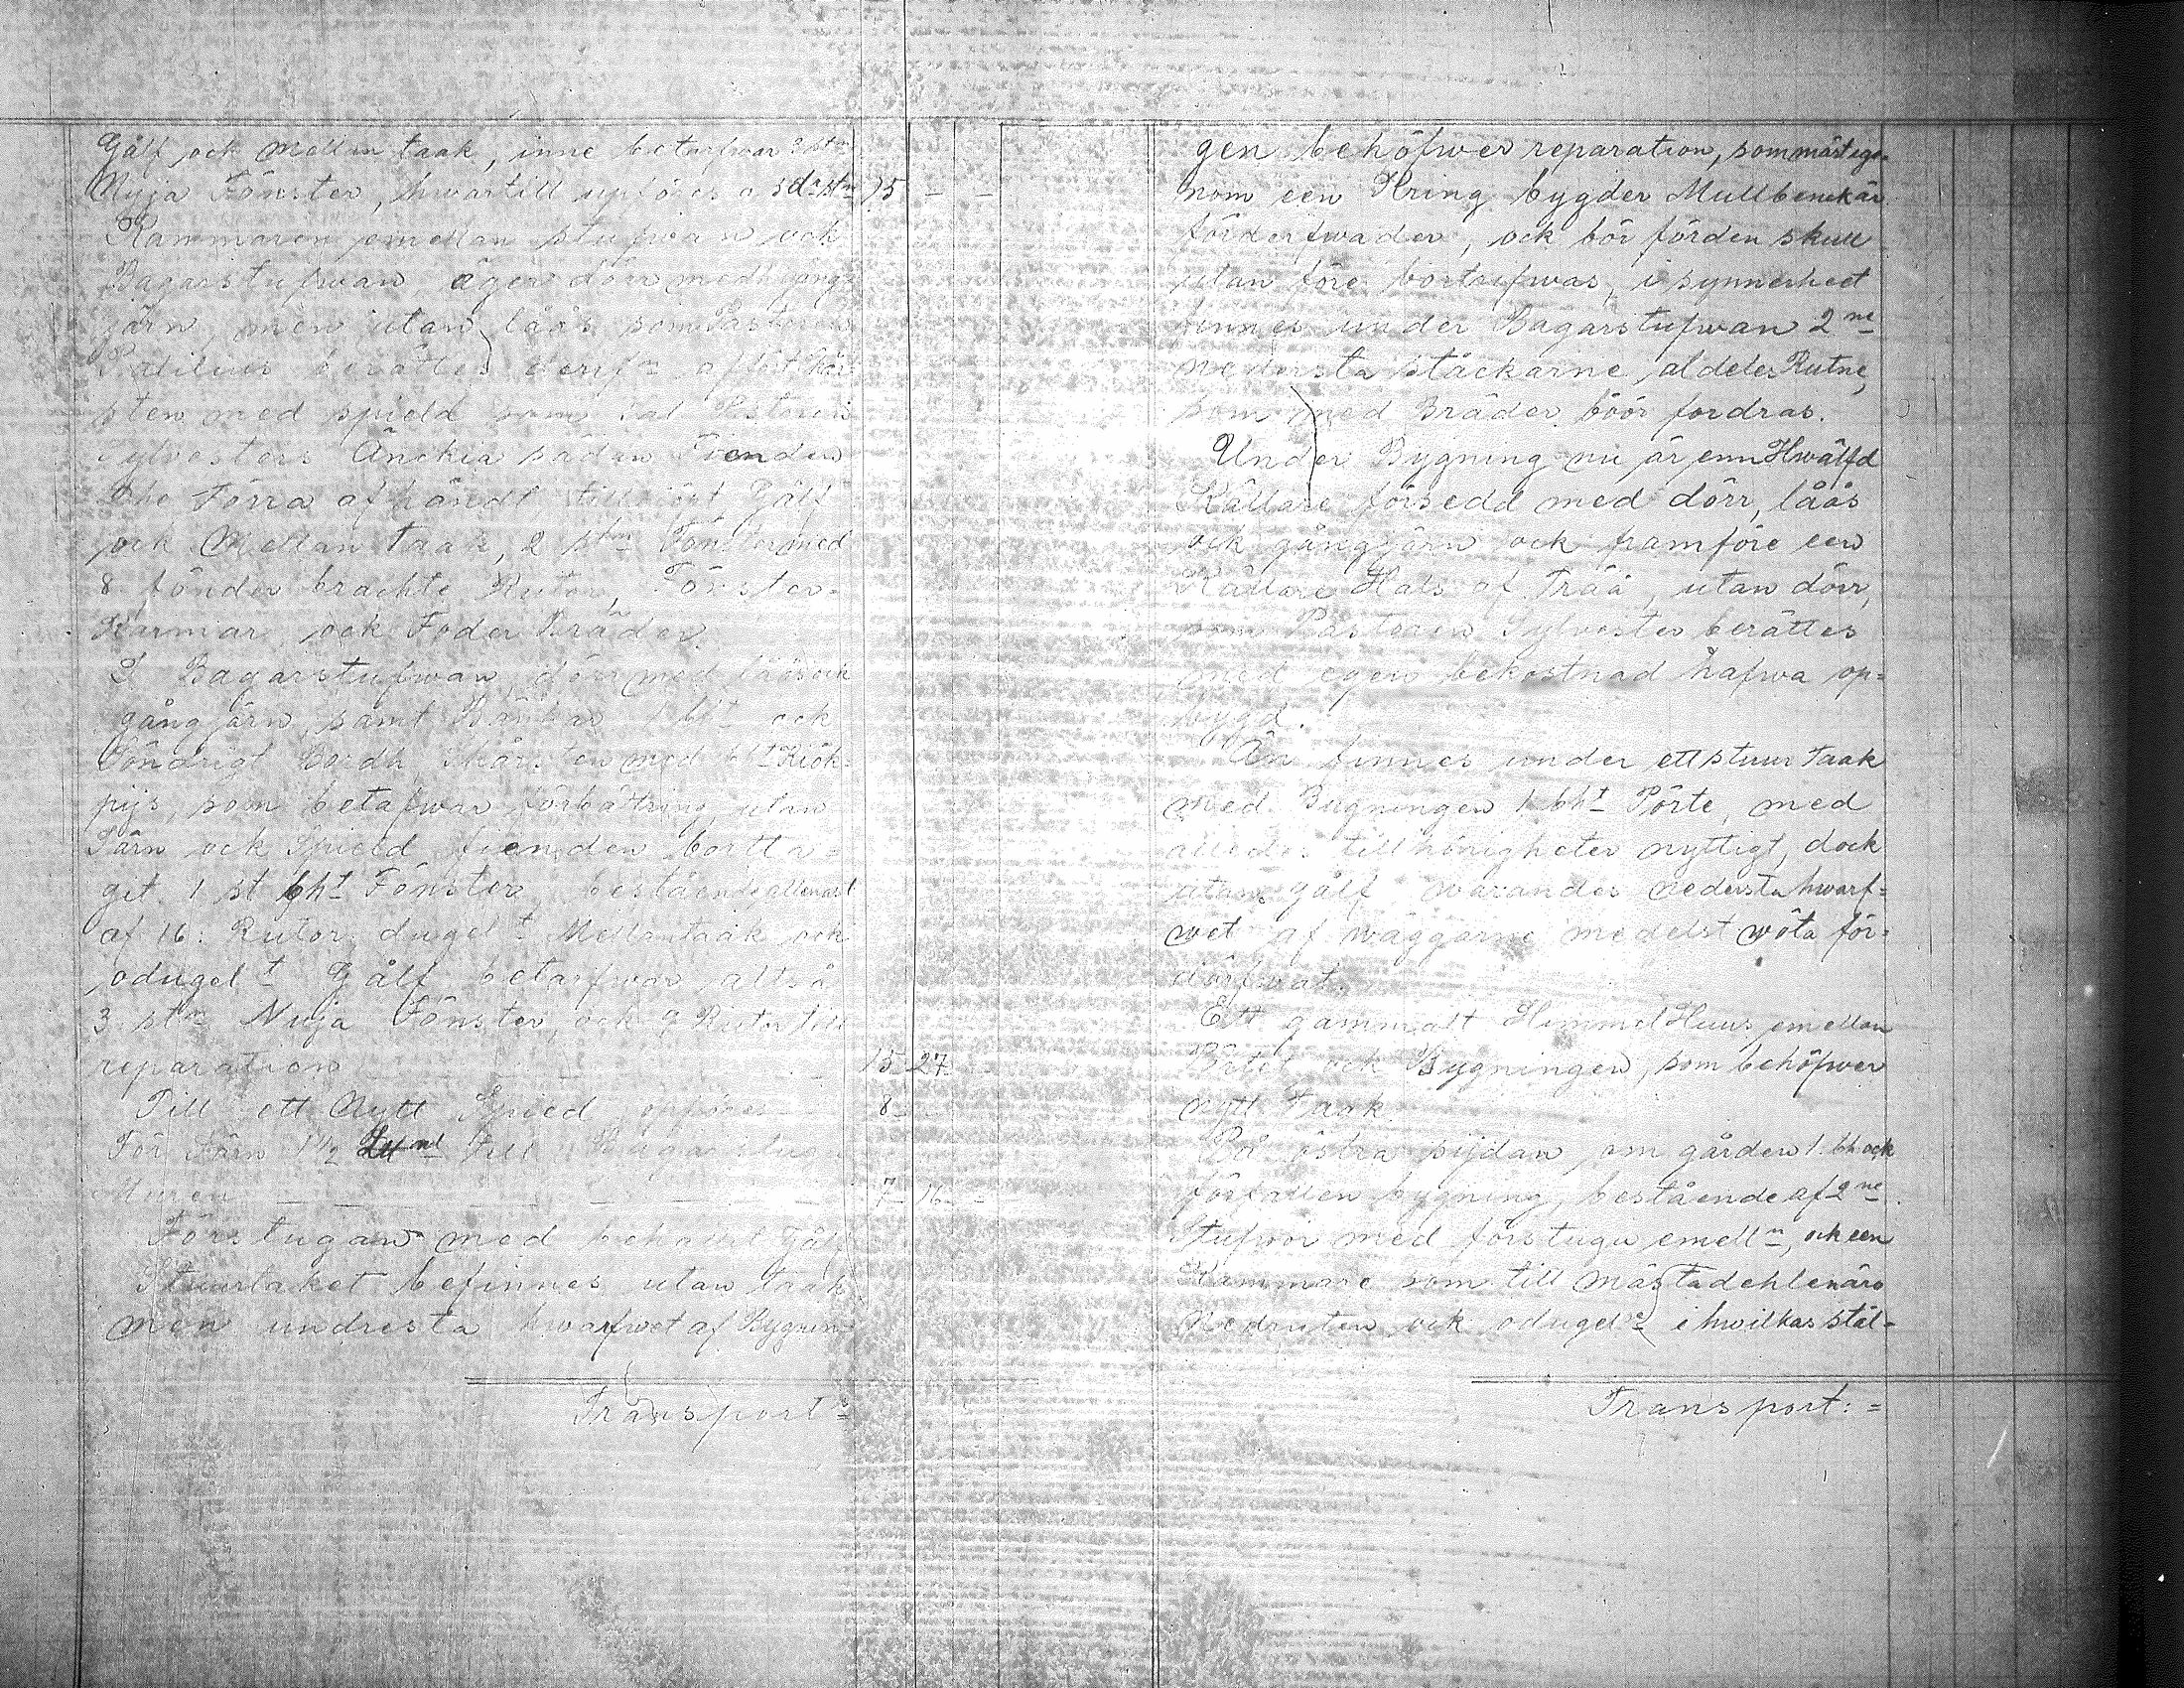 Gålf ock mellan taak, inne betarfwar 2 stn
Nyja Fönster, hwartill upföres a 5 dr stn 15 - -
Kammaren emellan stufwan och
Bagarstufwan, äger dörr med gång-
järn, men utan låås som Pastoren
berättes
sten med spield som Sal. Pastorens
Sylvesters Änckia sådan Fienden
the Förra afhändt tillsögt, Gålf
ock Mellan taak, 2 stn Fönster med
8 sönder brachte Rutor, Fönster-
Karmar, ock Foder Bräder
I Bagarstufwan dörr med låås ock
gångjärn, samt Bänkar 1 bht ock
Söndrigt Bordh, Skårsten med bht Kiök-
pijs, som betafwar förbättring, utan
Järn ock Spield fienden bortta-
git. 1 st bht Fönster, bestående allenast
af 16: Rutor, dugelt Mellantaak ock
odugelt Gålf betarfwar altså
3 stn Nyja Fönster, ock 9 Rutor till
reparation 15 27
Till ett Nytt Spied opföres 8
För Järn 1 1/2 till Bagarstugu
Muren 7 16
Förstugan med behållit Gålf
Stuurtaket befinnes utan taak
men undresta hwarfwet af Bygnin-
Transport
gen behöfwer reparation, som mäst ige-
nom een Kring bygder Mullbenck är
förderfwader, ock bör förden skull
utan före bortrifwas, i synnerheet
finnes under Bagarstufwan 2ne
nedersta ståckarne aldeles Rutne,
som med Bräder böör fordras.
Under Bygning nu är enn Hwälfd
Källare försedd med dörr, låås
ock gångjärn ock framföre een
Källare Hals af Träå, utan dörr,
som Pastoren Sylvester berättes
med egen bekostnad hafwa op-
bygd.
Än finnes under ett stuur taak
med Bygningen 1 bht Pörte, med
alledes tillhörigheter nyttigt, dock
utan gålf warandes nedersta hwarf-
wet af wäggarne medelst wöta för-
därfwat.
Ett gammalt Himmel Huus emellan
Pörtet ock Bygningen, som behöfwer
nytt taak
På östra sijdan om gården 1. bh ock
förfallen bygning, bestående af 2ne
Stufwor med förstugu emelln, ock een
Kammare som till mästadehlen äro
Nedruten ock odugele i hwilkas stäl-
Transport: =